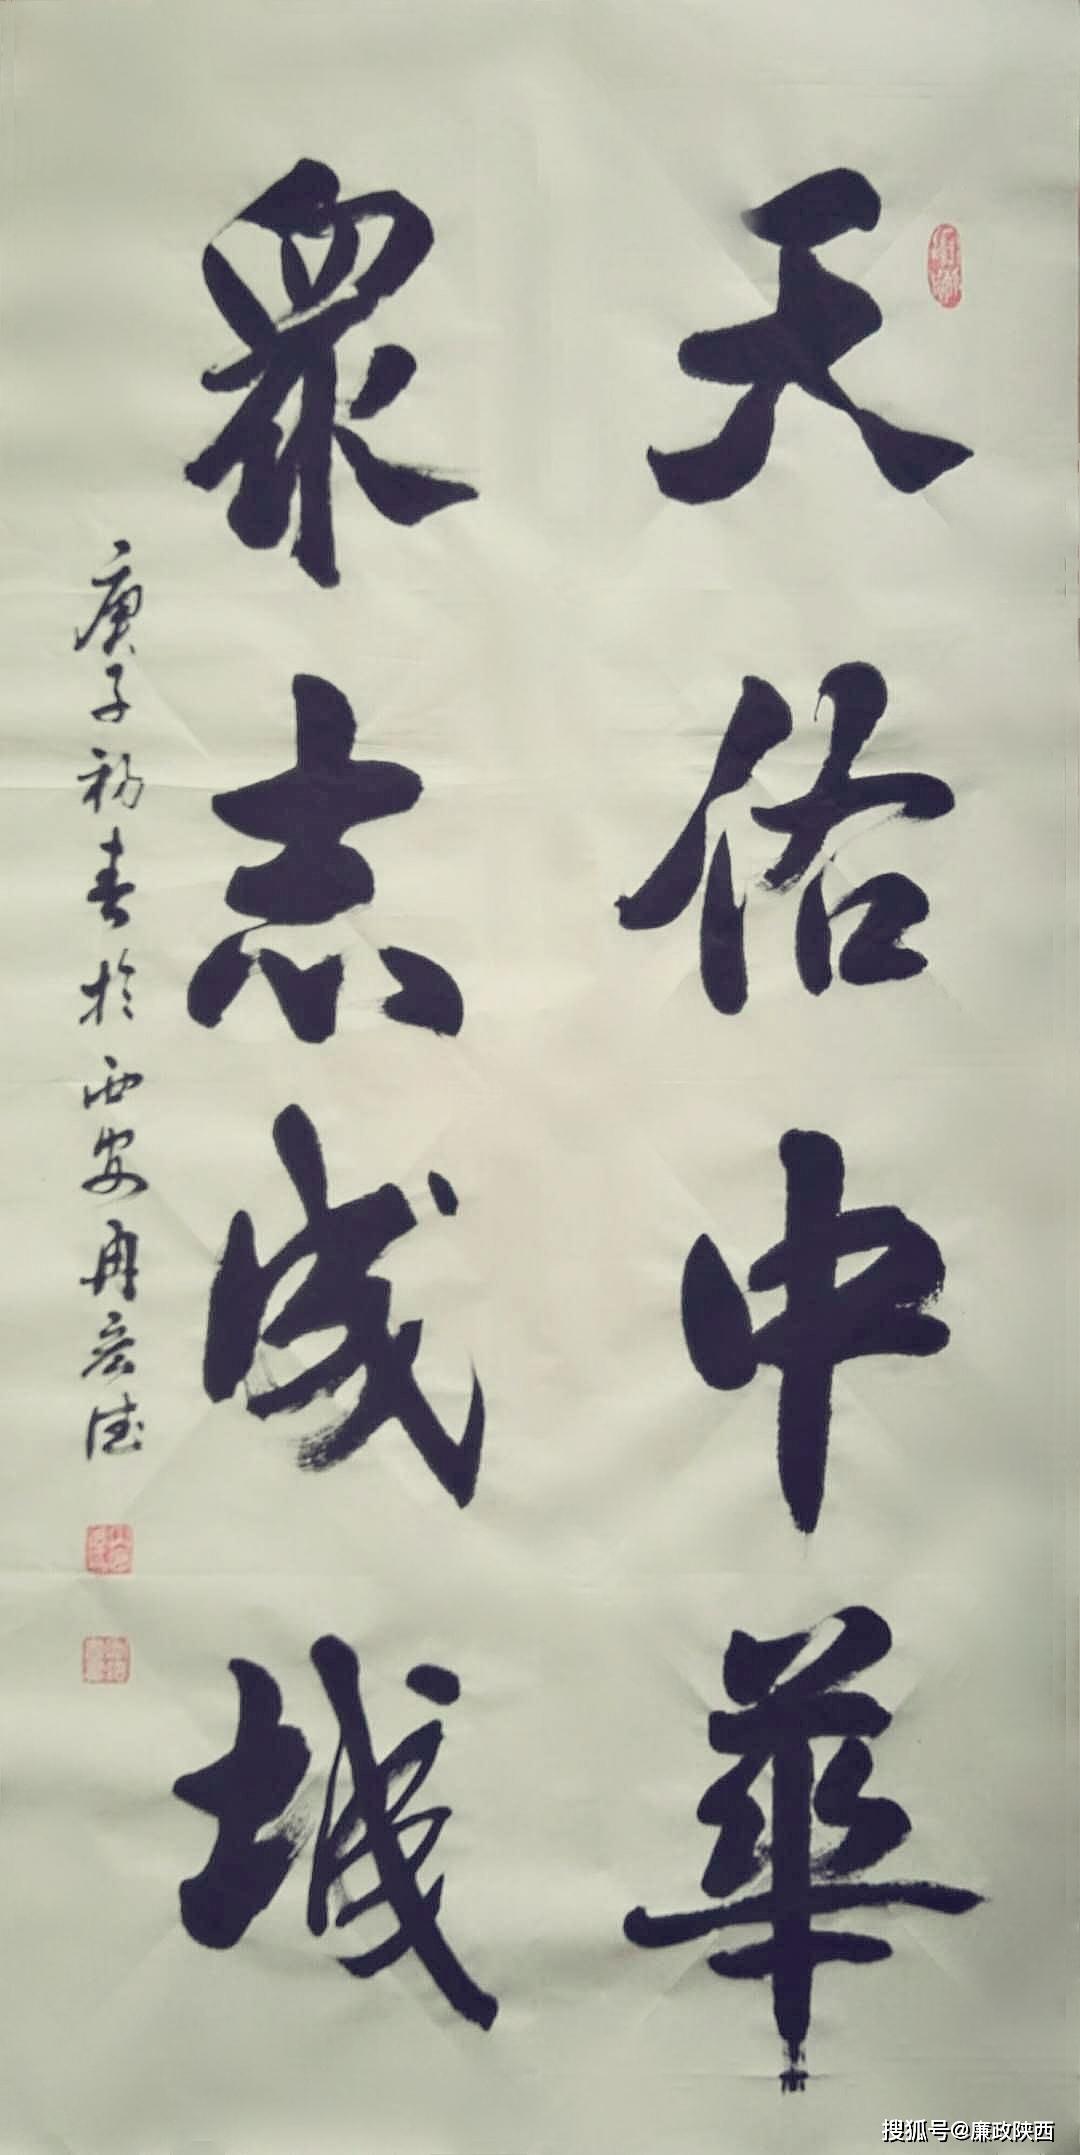 天佑中華
眾志成城
庚子初春於西安冉宏德
搜狐号@廉政陕西